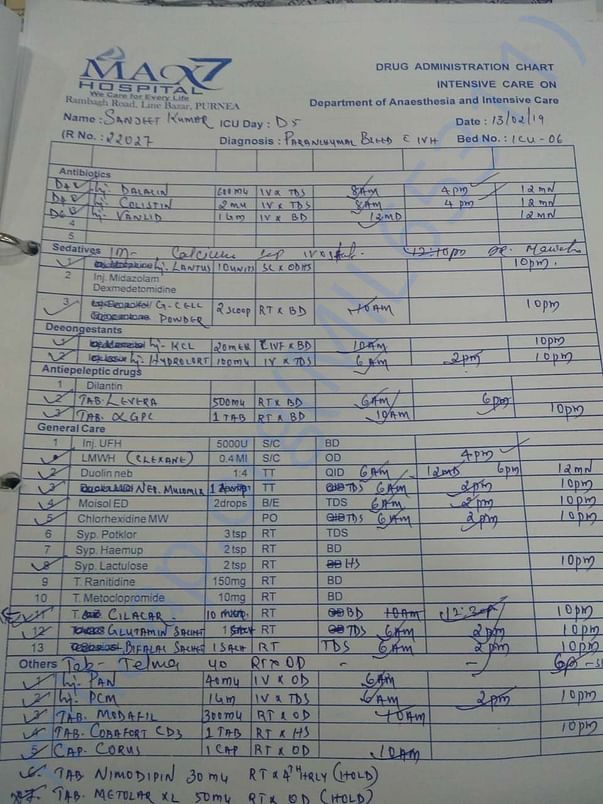 MAX7
HOSPITAL
We Care for Every Life
Rambagh Road, Line Bazar, PURNEA
DRUG ADMINISTRATION CHART
INTENSIVE CARE ON
Department of Anaesthesia and Intensive Care
Name : SANJEET KUMAR ICU Day : D5 Date : 13/02/19
(R No. : 22027 Diagnosis : PARANCHYMAL BLEED C IVH Bed No. : ICU - 06
Antibiotics
Inj. DALACIN 600mg IV x TDS 8AM 4pm 12MN
Inj. COLISTIN 2mu IV x TDS 8AM 4pm 12MN
Inj. VANLID 1Gm IV x BD 12MD 12MN
4
5
Sedatives Inj- Calcium IV 12:10pm
1 Inj. LANTUS 10UNITS SC x ODHS 10pm.
2 Inj. Midazolam
Dexmedetomidine
3 G-CELL POWDER 2 scoop RT x BD 10AM 10pm
Deeongestants
1 Inj. KCL 20MER IVF x BD 10AM 10pm
2 Inj. HYDROCORT 100mg IV x TDS 6AM 2pm 10pm
Antiepeleptic drugs
1 Dilantin
2 TAB. LEVERA 500mg RT x BD 6AM 6pm
3 TAB. α GPC 1 TAB RT x BD 10AM 10pm
General Care
1 Inj. UFH 5000U S/C BD
LMWH (CLEXANE) 0.4Ml S/C OD 4pm
2 Duolin neb 1:4 TT QID 6AM 12MD 6pm 12MN
3 NEB. MUCOMIX TT TDS 6AM 2pm 10pm
4 Moisol ED 2drops B/E TDS 6AM 2pm 10pm
5 Chlorhexidine MW PO TDS 6AM 2pm 10pm
6 Syp. Potklor 3 tsp RT TDS
7 Syp. Haemup 2 tsp RT BD
8 Syp. Lactulose 2 tsp RT HS 10pm
9 T. Ranitidine 150mg RT BD
10 T. Metoclopromide 10mg RT BD
11 T. CILACAR 10 RT BD 10AM 10pm
12 GLUTAMIN SACHET 1 SACH RT TDS 6AM 2pm 10pm
13 BIFALAC SACHET 1 SACH RT TDS 6AM 2pm 10pm
Others Tab- Telma 40 RT x OD - - 6p
1 Inj. PAN 40mg IV x OD 6AM
2 Inj. PCM 1Gm IV x TDS 6AM 2pm 10pm
3 TAB. MODAFIL 300mg RT x OD 10AM
4 TAB. COBAFORT CD3 1 TAB RT x HS 10pm
5 CAP. CORUS 1 CAP RT x OD 10AM
6. TAB NIMODIPIN 30mg RT x 4THRLY (HOLD)
7. TAB. METOLAR XL 50mg RT x OD (HOLD)